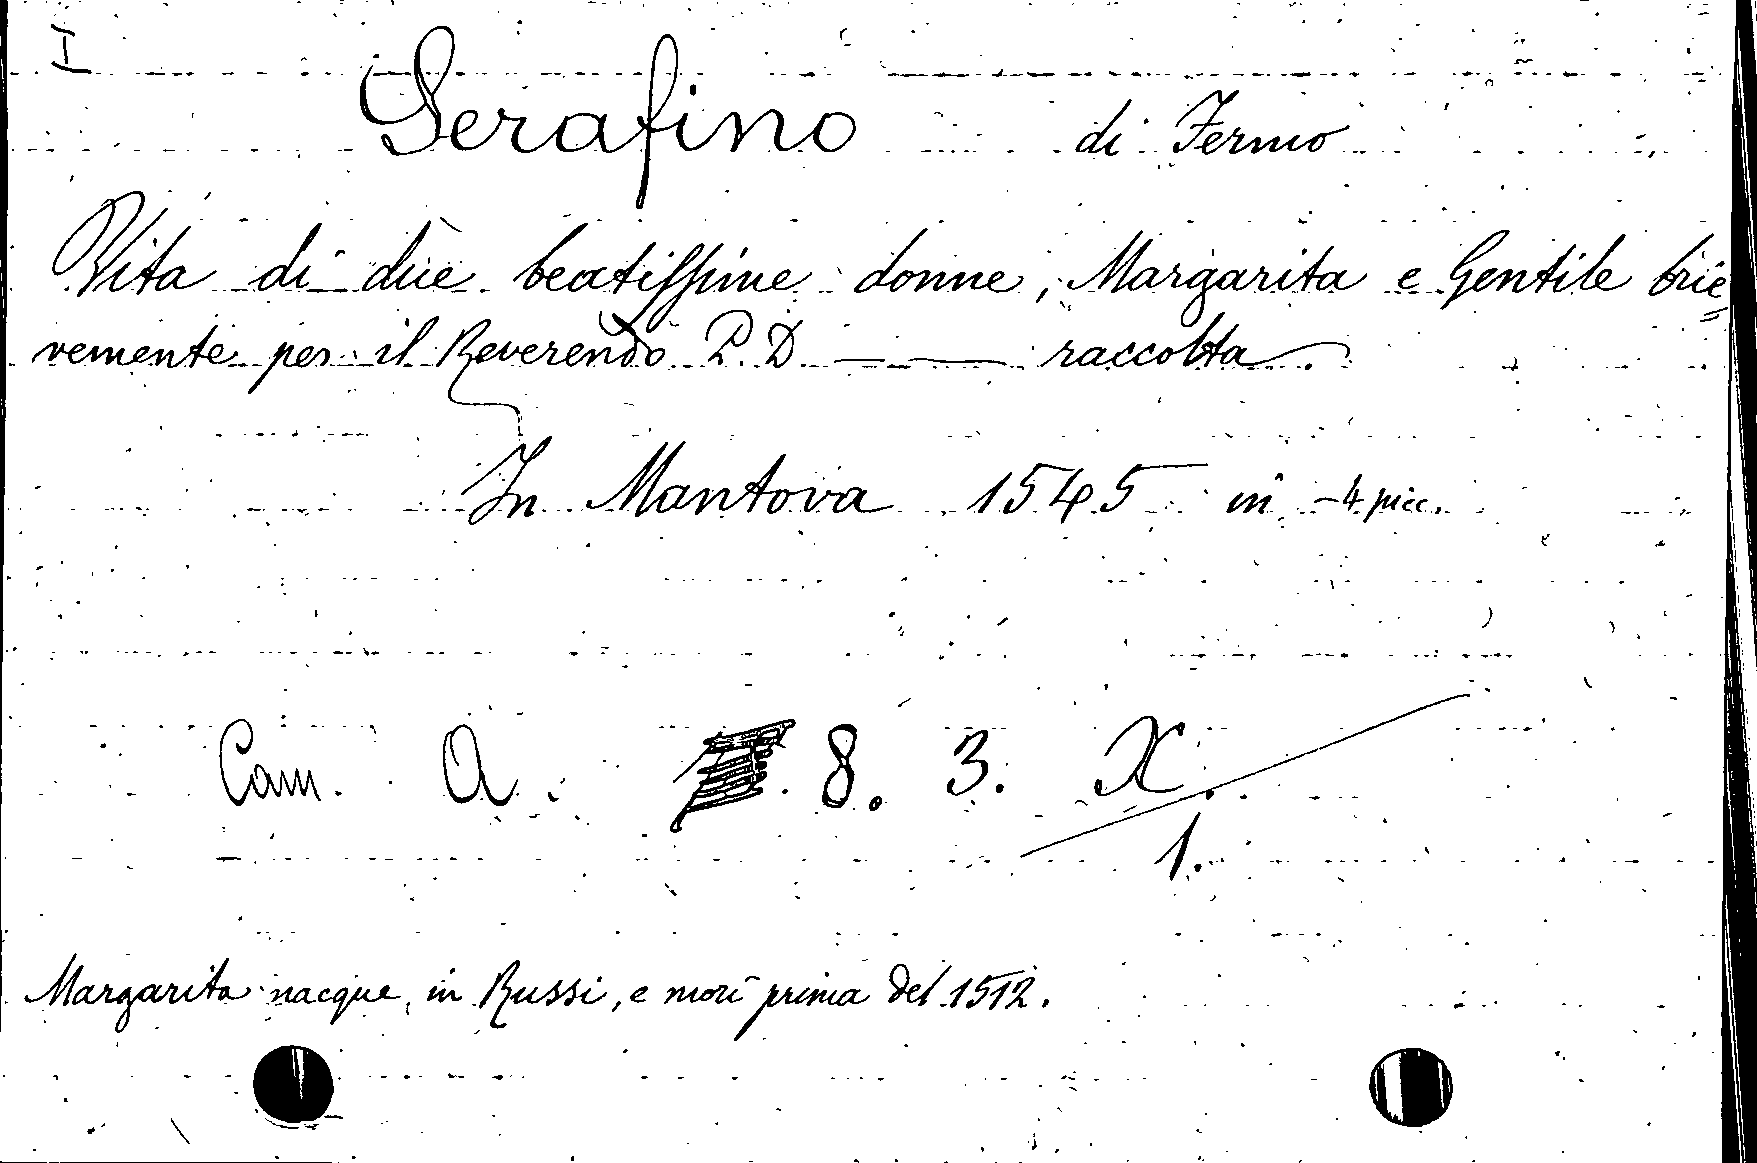 I
Serafino di Fermo
Vita di due beatissime donne, Margarita e Gentile brie=
vemente per il Reverendo P. D — — raccolta.
In Mantova 1545 in -4. picc.
Cam. A. 8. 3. X.
1.
Margarita nacque in Russi, e morì prima del 1512.